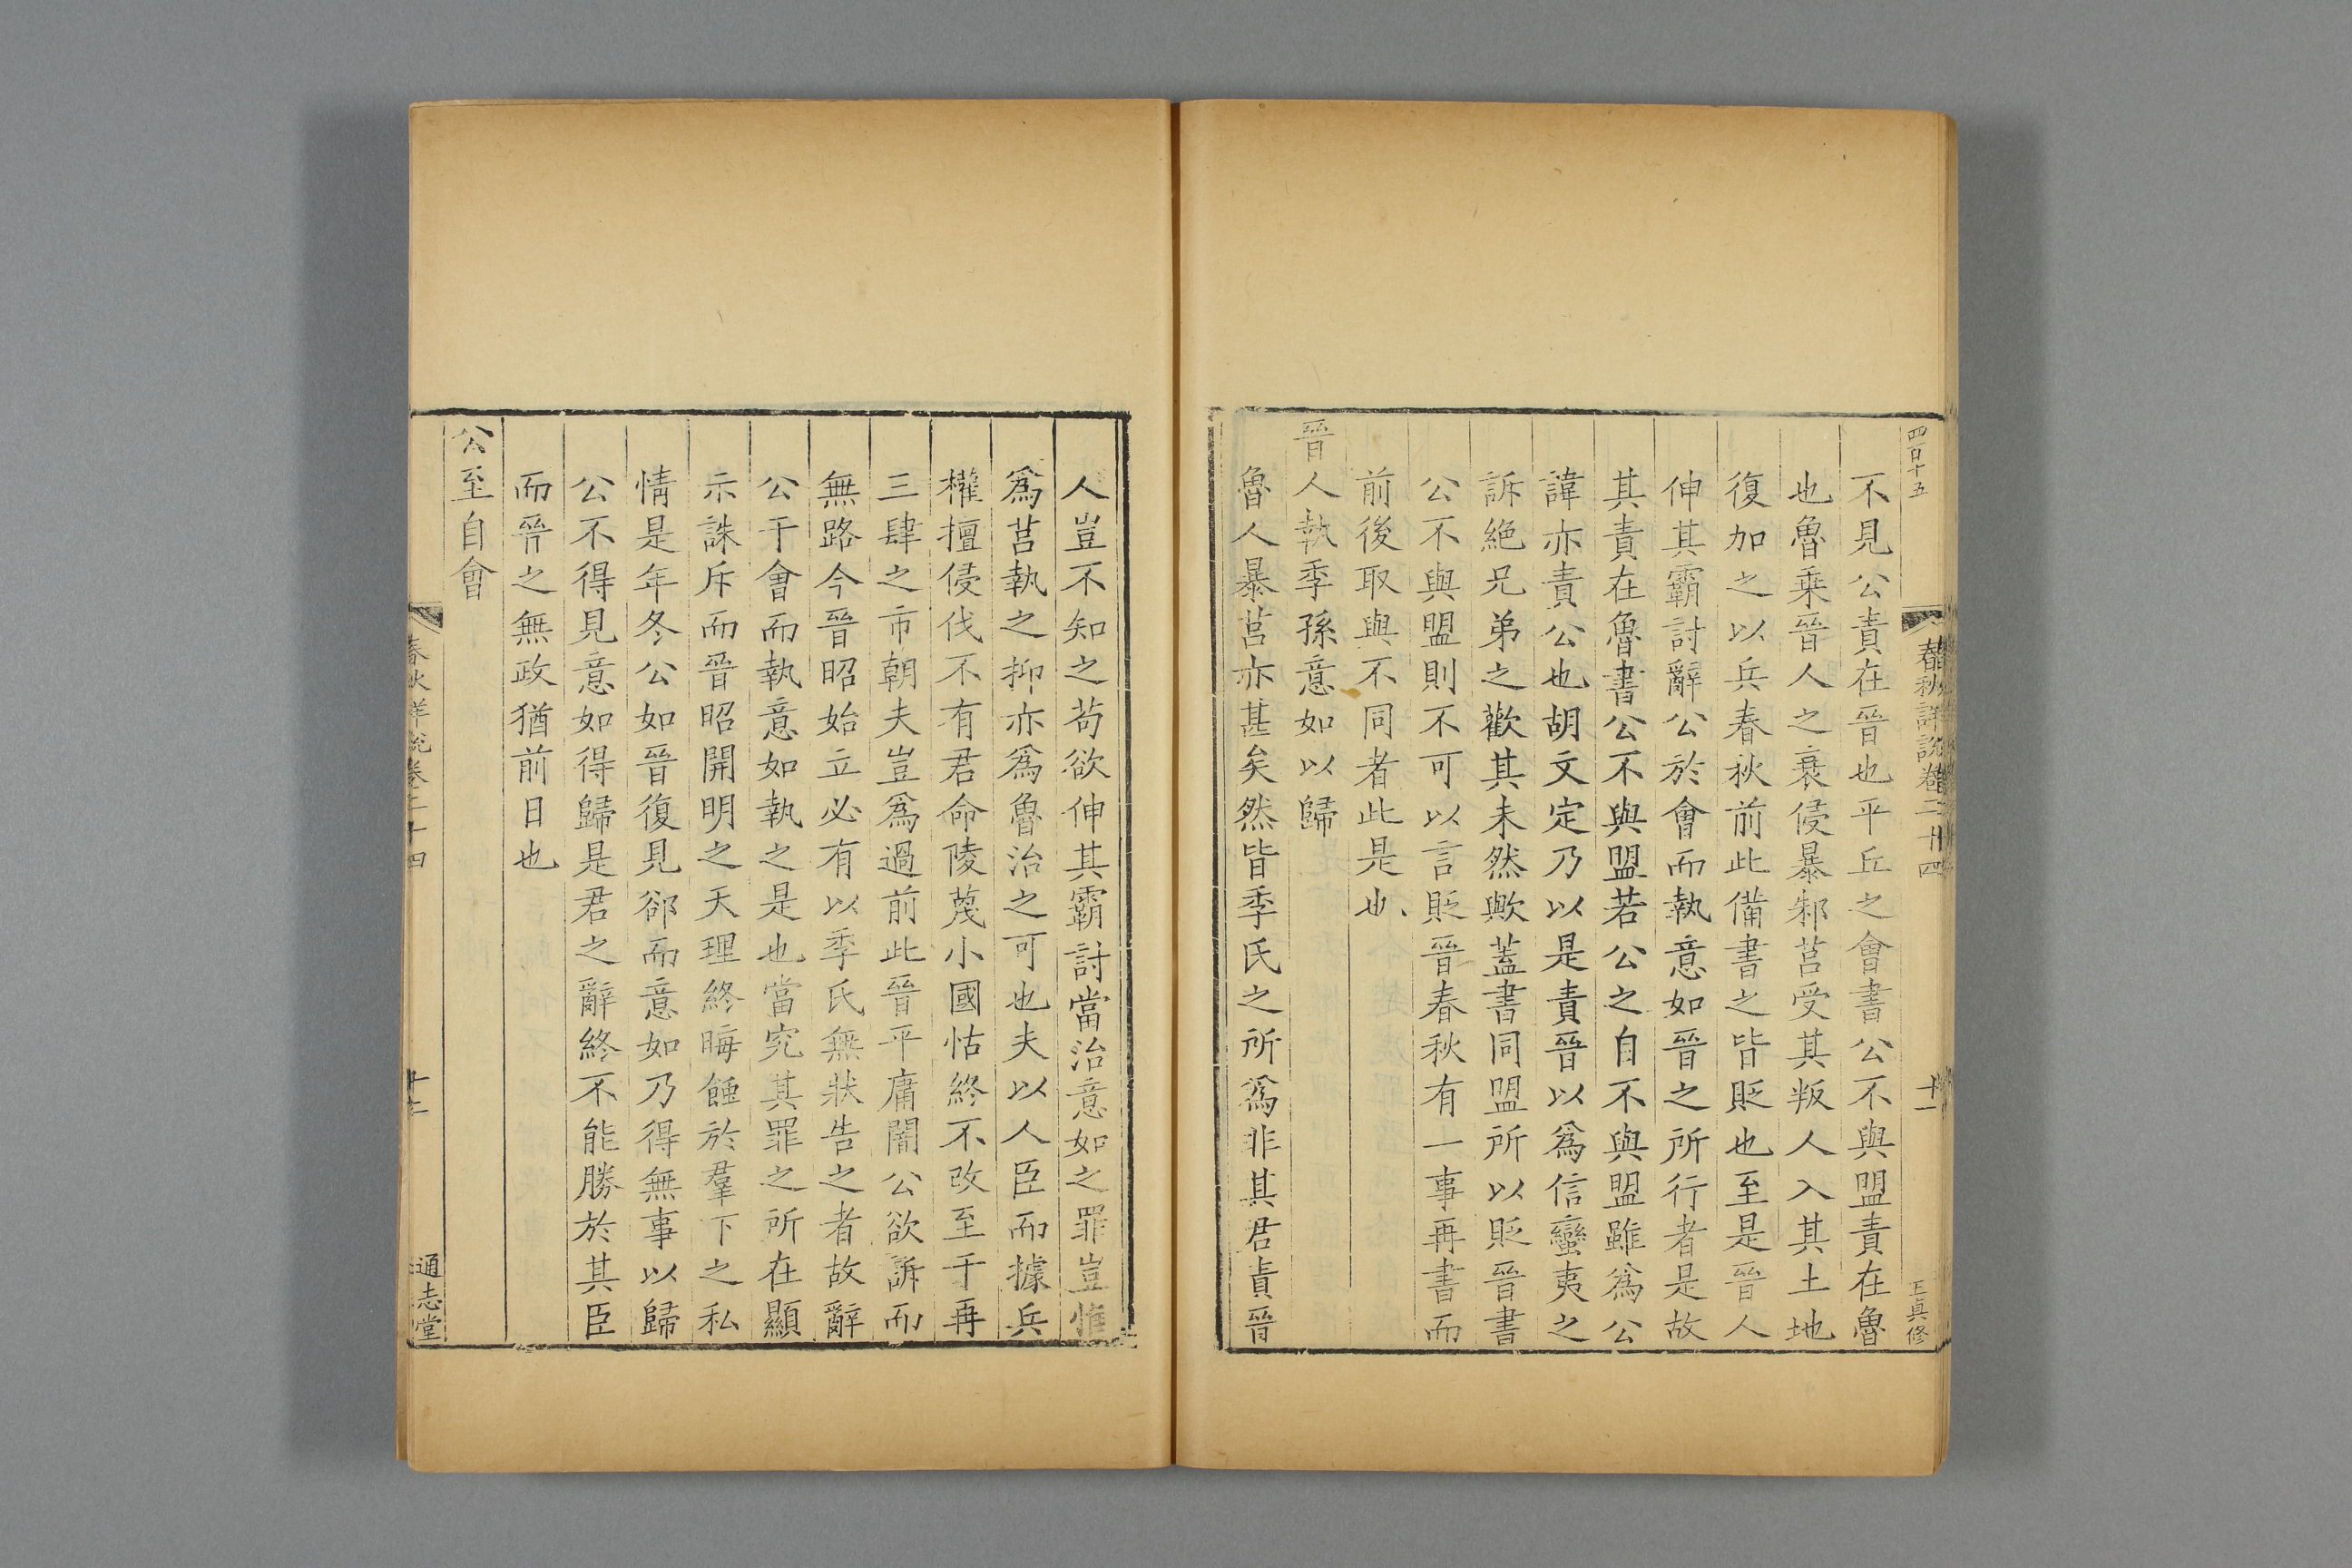 四百十五
春秋詳說卷二十四
十一
王眞修
不見公責在晉也平丘之會書公不與盟責在魯
也魯乘晉人之衰侵暴邾莒受其叛人入其土地
復加之以兵春秋前此備書之皆貶也至是晉人
伸其霸討辭公於會而執意如晉之所行者是故
其責在魯書公不與盟若公之自不與盟雖爲公
諱亦責公也胡文定乃以是責晉以爲信蠻夷之
訴絶兄弟之歡其未然歟蓋書同盟所以貶晉書
公不與盟則不可以言貶晉春秋有一事再書而
前後取與不同者此是也
晉人執季孫意如以歸
魯人暴莒亦甚矣然皆季氏之所爲非其君責晉
人豈不知之苟欲伸其霸討當治意如之罪豈惟
爲莒執之抑亦爲魯治之可也夫以人臣而據兵
權擅侵伐不有君命陵蔑小國怙終不改至于再
三肆之市朝夫豈爲過前此晉平庸闇公欲訴而
無路今晉昭始立必有以季氏無狀告之者故辭
公于會而執意如執之是也當究其罪之所在顯
示誅斥而晉昭開明之天理終晦蝕於羣下之私
情是年冬公如晉復見郤而意如乃得無事以歸
公不得見意如得歸是君之辭終不能勝於其臣
而晉之無政猶前日也
公至自會
春秋詳說卷二十四
十二
通志堂